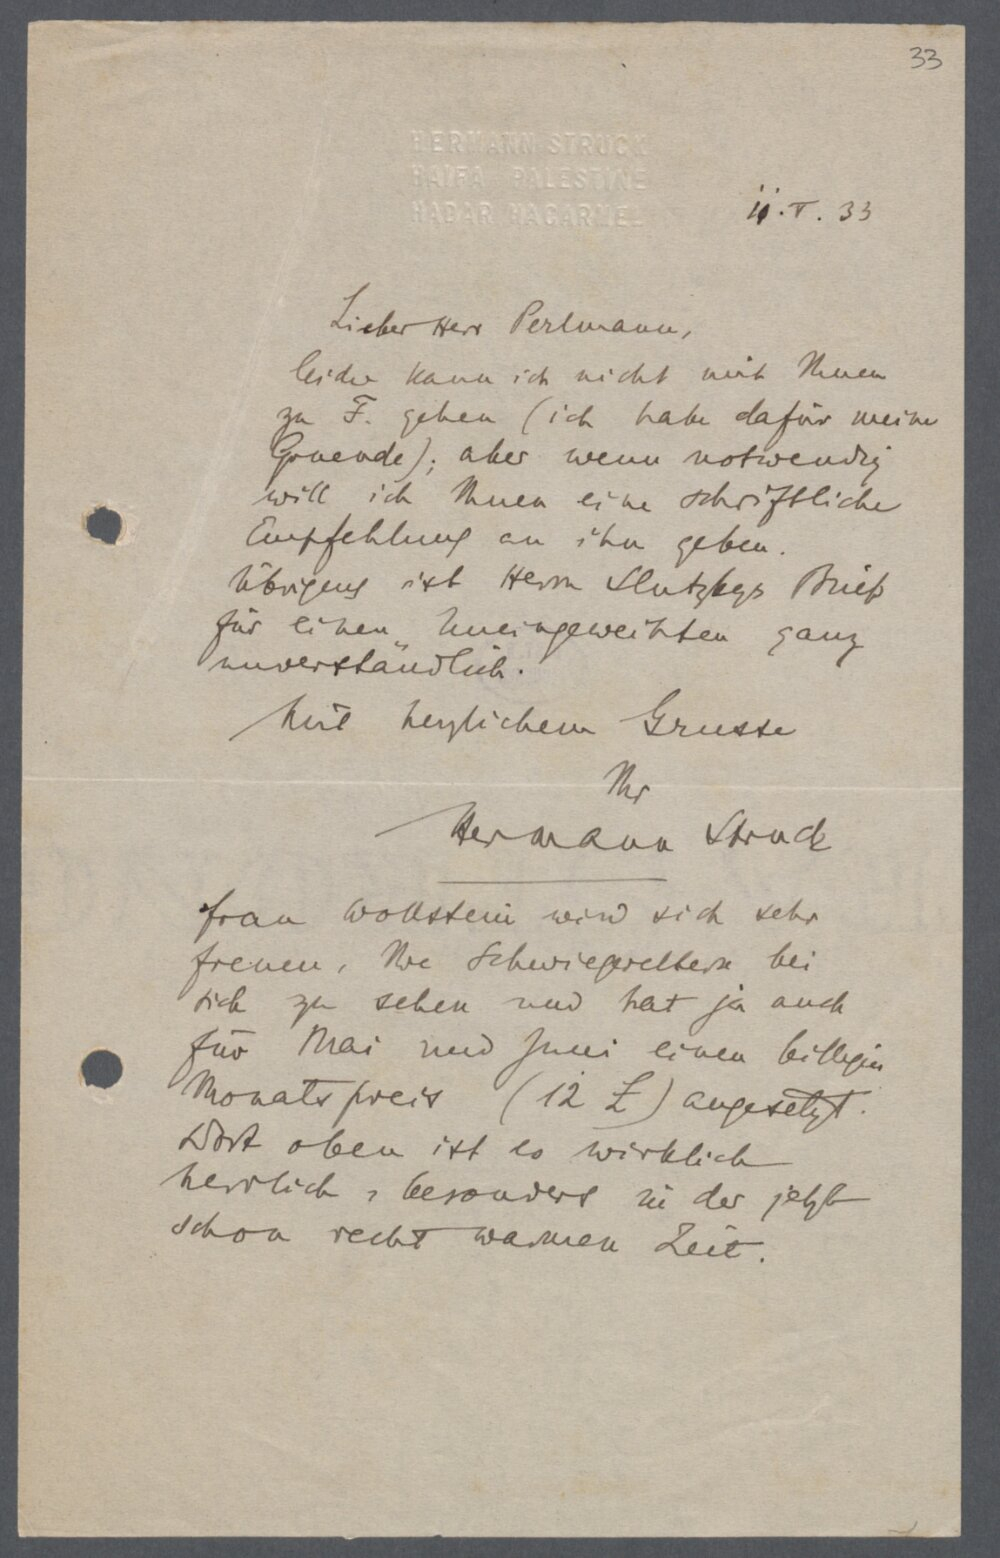 33
HERMANN STRUCK
HAIFA PALESTINE
HADAR HACARMEL
11.V.33
Lieber Herr Perlmann,
leider kann ich nicht mit Ihnen
zu F. gehen (ich habe dafür meine
Gruende); aber wenn notwendig
will ich Ihnen eine schriftliche
Empfehlung an ihn geben.
Übrigens ist Herrn Slutzkys Brief
für einen Uneingeweihten ganz
unverständlich.
Mit herzlichem Grusse
Ihr
Hermann Struck
Frau Wollstein wird sich sehr
freuen, Ihre Schwiegereltern bei
sich zu sehen und hat ja auch
für Mai und Juni einen billigen
Monatspreis (12 £) angesetzt.
Dort oben ist es wirklich
herrlich, besonders in der jetzt
schon recht warmen Zeit.